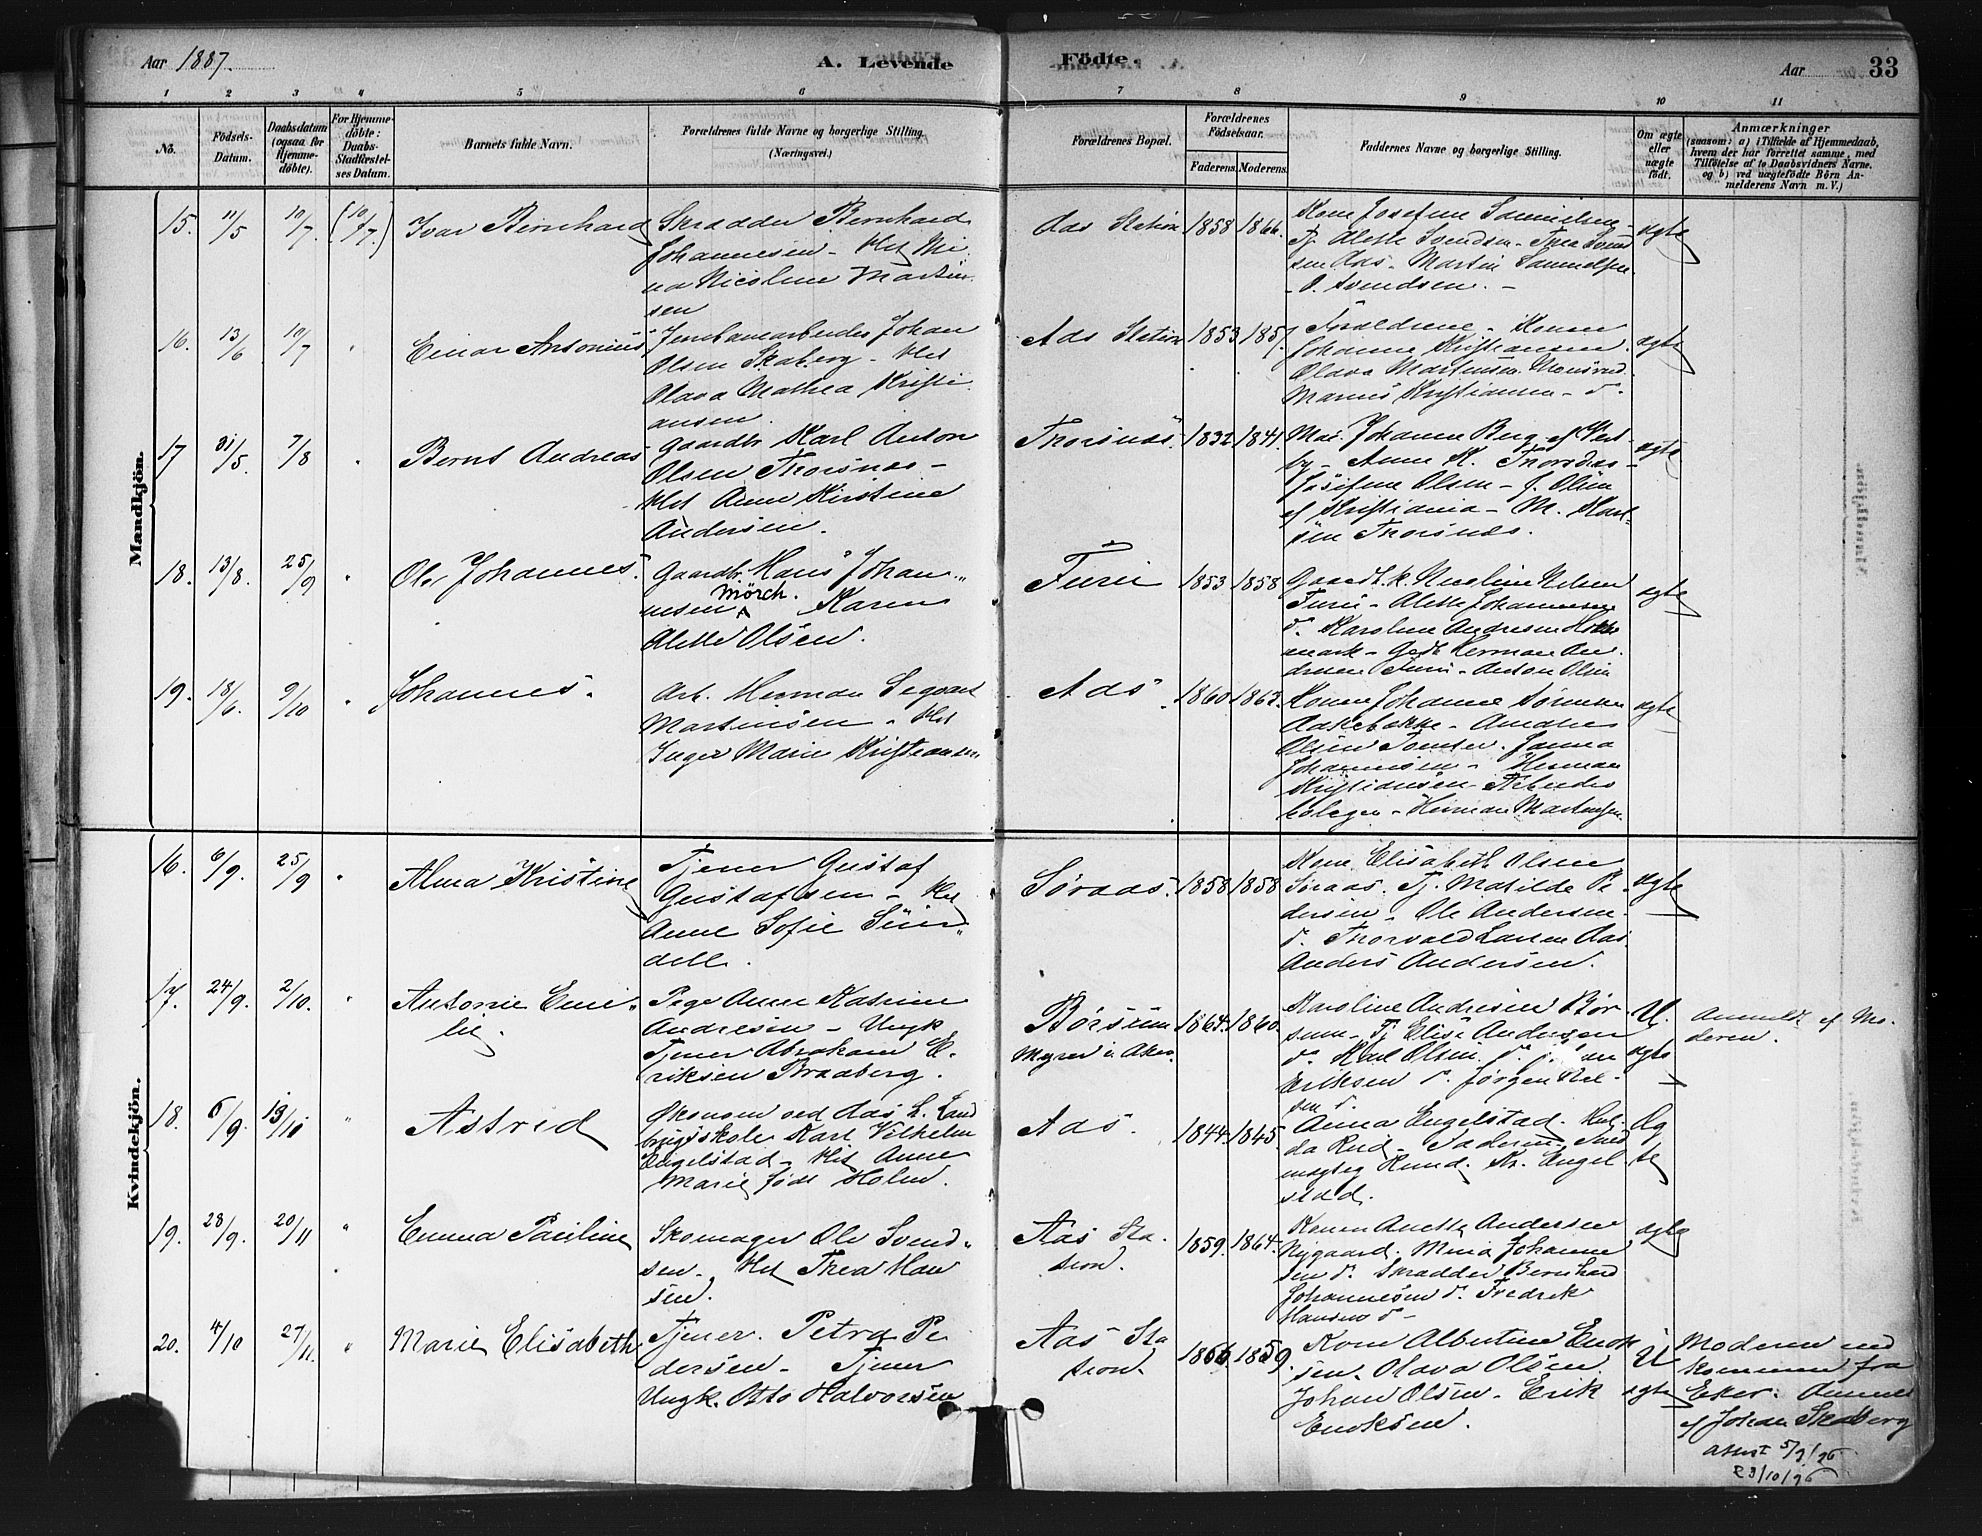 Aar 1887. A. Levende Födte. Aar 33
1 2 3 4 5 6 7 8 9 10 11
No.
Födsels-Datum.
Daabsdatum (ogsaa for Hjemmedöbte).
For Hjemmedöbte: Daabs-Stadfæstelses Datum.
Barnets fulde Navn.
Forældrenes fulde Navne og borgerlige Stilling.
(Næringsvei.)
Forældrenes Bopæl.
Forældrenes Födselsaar.
Faderens. Moderens.
Faddernes Navne og borgerlige Stilling.
Om ægte eller uægte født.
Anmærkninger
(saasom: a) i Tilfælde af Hjemmedaab,
hvem der har forrettet samme, med
Tilföielse af to Daabsvidners Navne,
og b) ved uægtefödte Börn An-
melderens Navn m. V.)
Mandkjön.
15. 11/5 10/7. (10/7.) Ivar Bernhard
Skrædder Bernhard
Johannesen - Hst Mi
na Nicoline Martin
sen
Aas Station 1858 1866.
Kone Josefine Samuelsen
Tj. Alette Svendsen - Thea Svend
sen Aas - Martin Samuelsen
- O. Svendsen. -
ægte
16. 13/6 10/7 " Einar Antonius
Jernbanearbeider Johan
Olsen Skaberg - Hst
Olava Mathea Kristi
ansen.
Aas Station 1853 1857.
Forældrene - Konen
Johanne Kristiansen
Olava Martinsen
Marius Kristiansen - do
ægte
17 31/5 7/8 " Bernt Andreas
Gaardbr Karl Anton
Olsen Thorsnæs -
Hst Anne Kirstine
Andersen.
Thorsnæs. 1832 1841.
Johanne Berg af Vest-
by - Anne K. Thorsnæs -
Josefine Olsen - J. Olsen
af Kristiania - M. Karl-
sen Thorsnæs.
ægte
18. 13/8. 25/9 " Ole Johannes.
Gaardbr. Hans Johan-
nesen Mörch. Karen
Alette Olsen.
Furu 1853 1858
Gaardbr. k. Nicoline Nilsen
Furu - Alette Johannesen
do Karoline Andresen Hol
mark - Gbr Herman An
dresen Furu - Anton Olsen
ægte
19. 18/6. 9/10 " Johannes.
Arb. Herman Segvart
Martinsen - Hst
Inger Marie Kristiansen
Aas 1860 1863.
Konen Johanne Sørensen
Aakebakke - Andreas
Olsen - Janna
Johannesen - Herman
Kristiansen - Arbeider
- Herman Martinsen
ægte
Kvindekjön.
16. 6/9. 25/9 " Alma Kristine
Tjener Gustaf
Gustafsen - Hst
Anne Sofie Sun
dell.
Søraas. 1858 1858
Kone Elisabeth Olsen
Søraas. Tj. Matilde Pe-
dersen - Ole Andersen
do Thorvald Larsen Aas.
Anders Andersen.
ægte
17. 24/9. 2/10. " Antonie Emi-
lie.
Pige Anne Katrine
Andresen - Ungk.
Tjener Abraham E-
riksen Braaberg.
Börsum
Myrer i Aker 1864. 1860.
Karoline Andresen Bör
sum - Tj. Elise Andersen
do Karl Olsen do
Eriksen do Jørgen Niel-
sen do
U.
ægte
Anmeldt af Mo-
deren.
18. 6/9 13/10 " Astrid
Økonom ved Aas h. Land
brugsskole Karl Vilhelm
Engelstad - Hst Anne
Marie født Holm.
Aas. 1844. 1845
Anna Engelstad. Hul-
da Ruud - Faderen -
Kr. Engel
stad.
Æg
te
19. 28/9. 20/11 " Emma Pauline
Skomager Ole Svend-
sen. Hst Thea Han
sen.
Aas Sta-
tion. 1859. 1864.
Konen Anette Andersen
Nygaard. Mina Johanne
sen do. Skrædder Bernhard
Johannesen do. Fredrik
Hansen do -
ægte
20. 4/10 27/11. " Marie Elisabeth
Tjener. Petra Pe
dersen - Tjener
Ungk. Otto Halvorsen
Aas Sta
tion. 1866. 1859.
Kone Albertine Erik
sen. Olava Olsen.
Johan Olsen - Erik
Eriksen.
U
ægte
Moderen ned
kommen fra
Eker. Anmeldt
af Johan Skaberg
attest 5/2/26
23/10/26